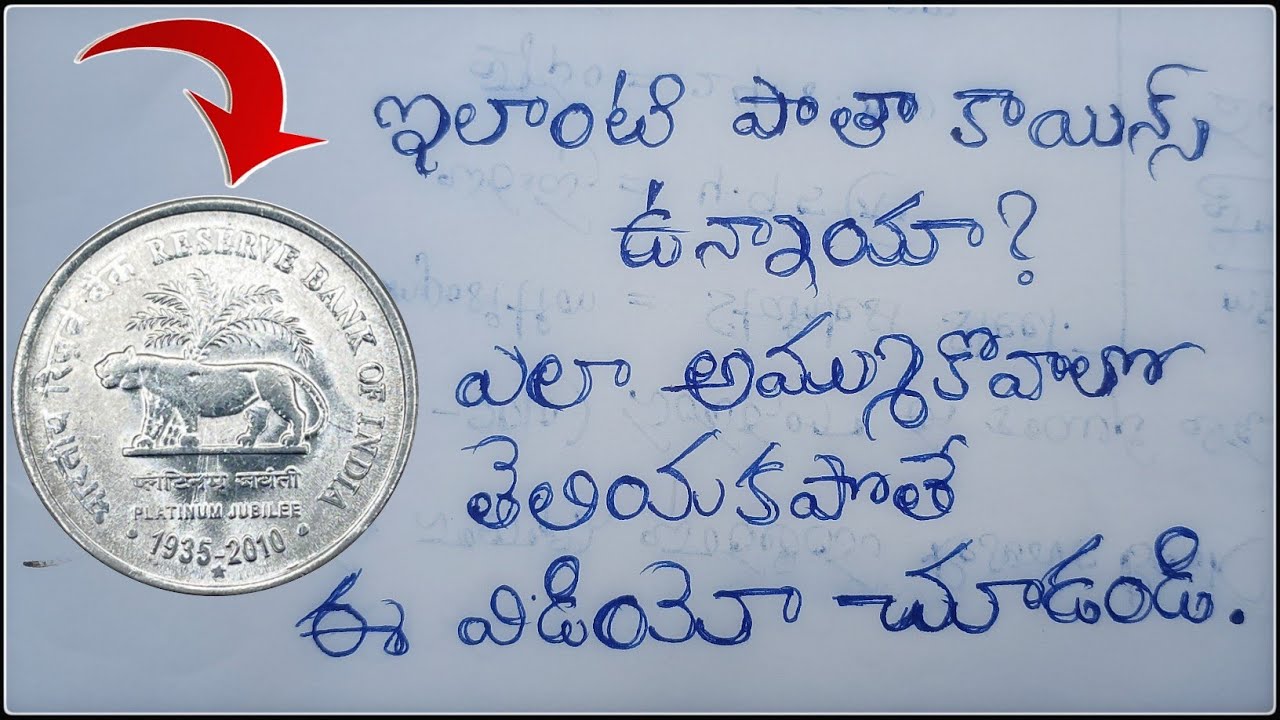 ఇలాంటి పాతా కాయిన్స్
ఉన్నాయా?
ఎలా అమ్ముకోవాలో
తేలియకపోతే
ఈ విడియో చూడండి.
भारतीय रिज़र्व बैंक RESERVE BANK OF INDIA
प्लेटिनम जयंती
PLATINUM JUBILEE
1935-2010